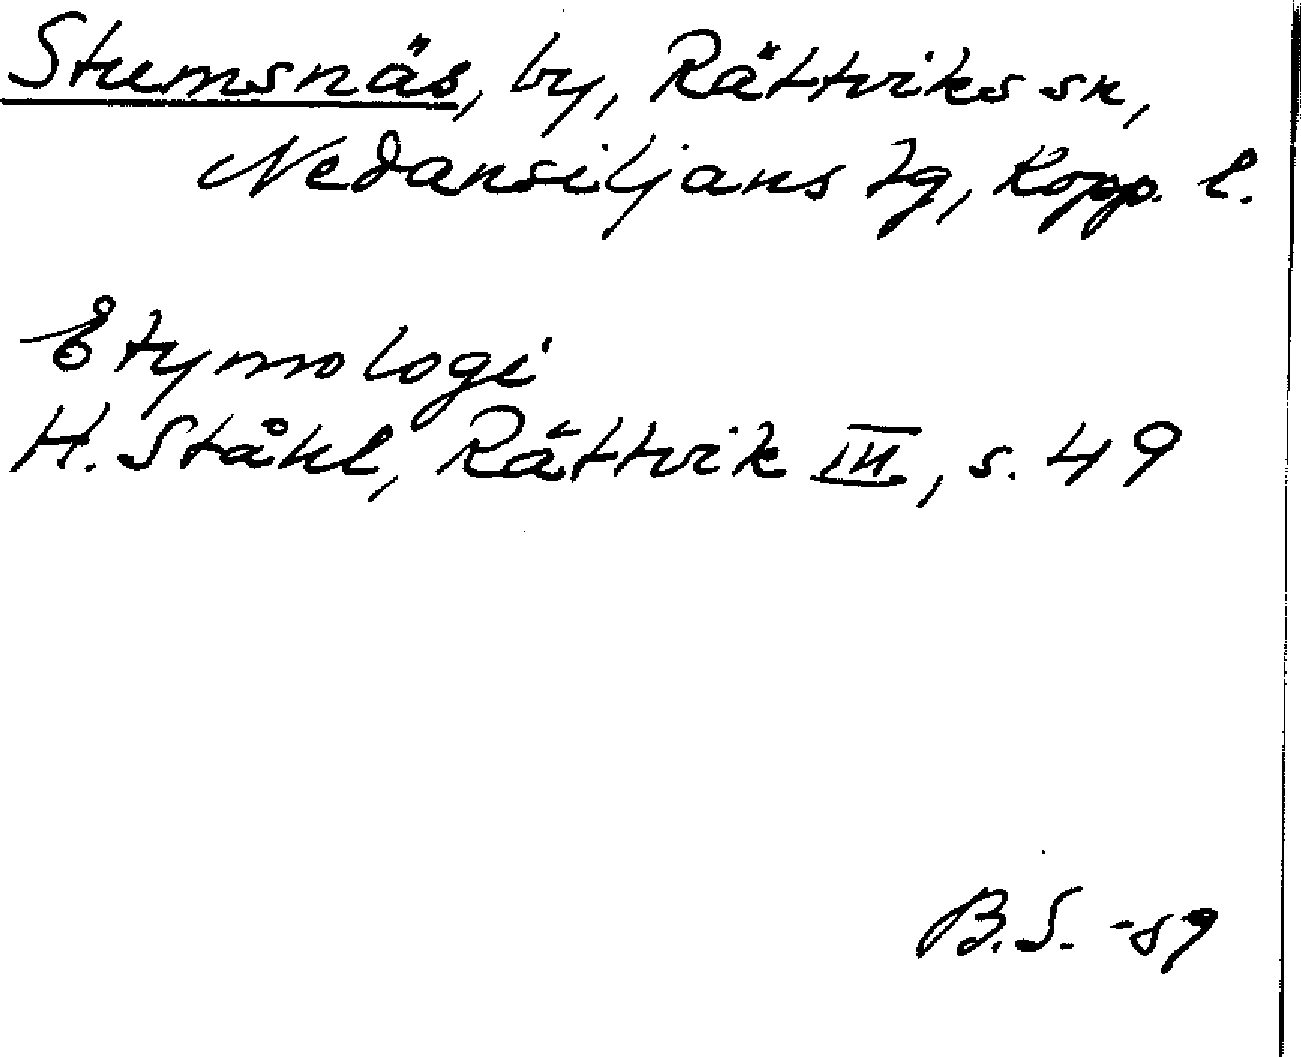 Stumsnäs, by, Rättviks sn,
Nedansiljans tg, Kopp. l.
Etymologi
H. Ståhl, Rättvik III, s. 49
B.S. -89